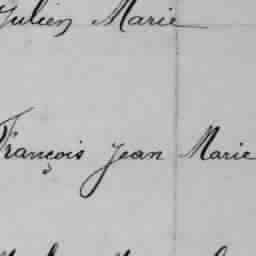 Julien Marie
François Jean Marie